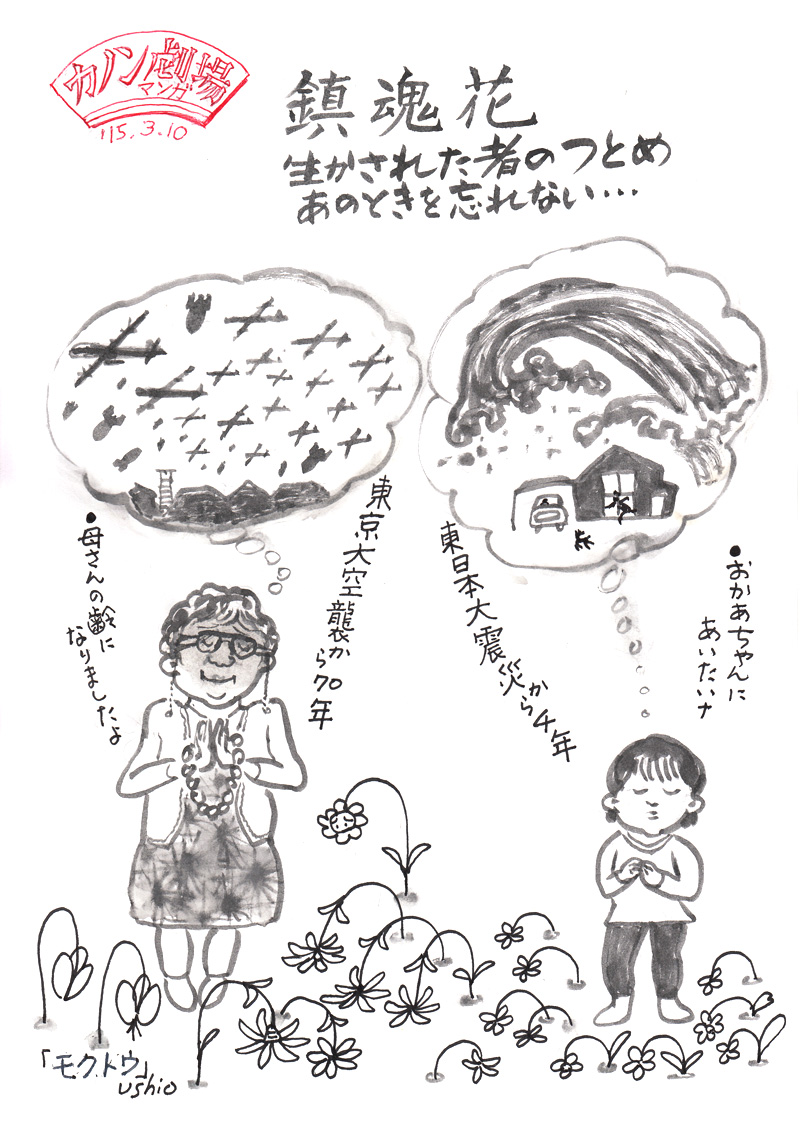 カノン劇場
マンガ
'15.3.10
鎮魂花
生かされた者のつとめ
あのときを忘れない…
東京大空襲から70年
●母さんの齢に
なりましたよ
東日本大震災から4年
●おかあちゃんに
あいたいナ
「モクトウ」
ushio